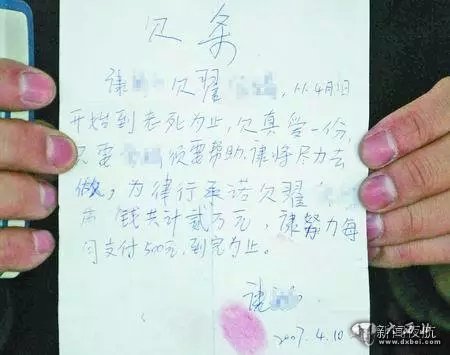 欠条
谏 欠翟 , 从4月1日
开始到老死为止,欠真爱一份,
只需 须要帮助,谏将尽力去
做,为律行承诺欠翟
钱共计贰万元,谏努力每
月支付500元,到完为止。
谏
2007.4.10
新闻夜航
www.dxbei.com